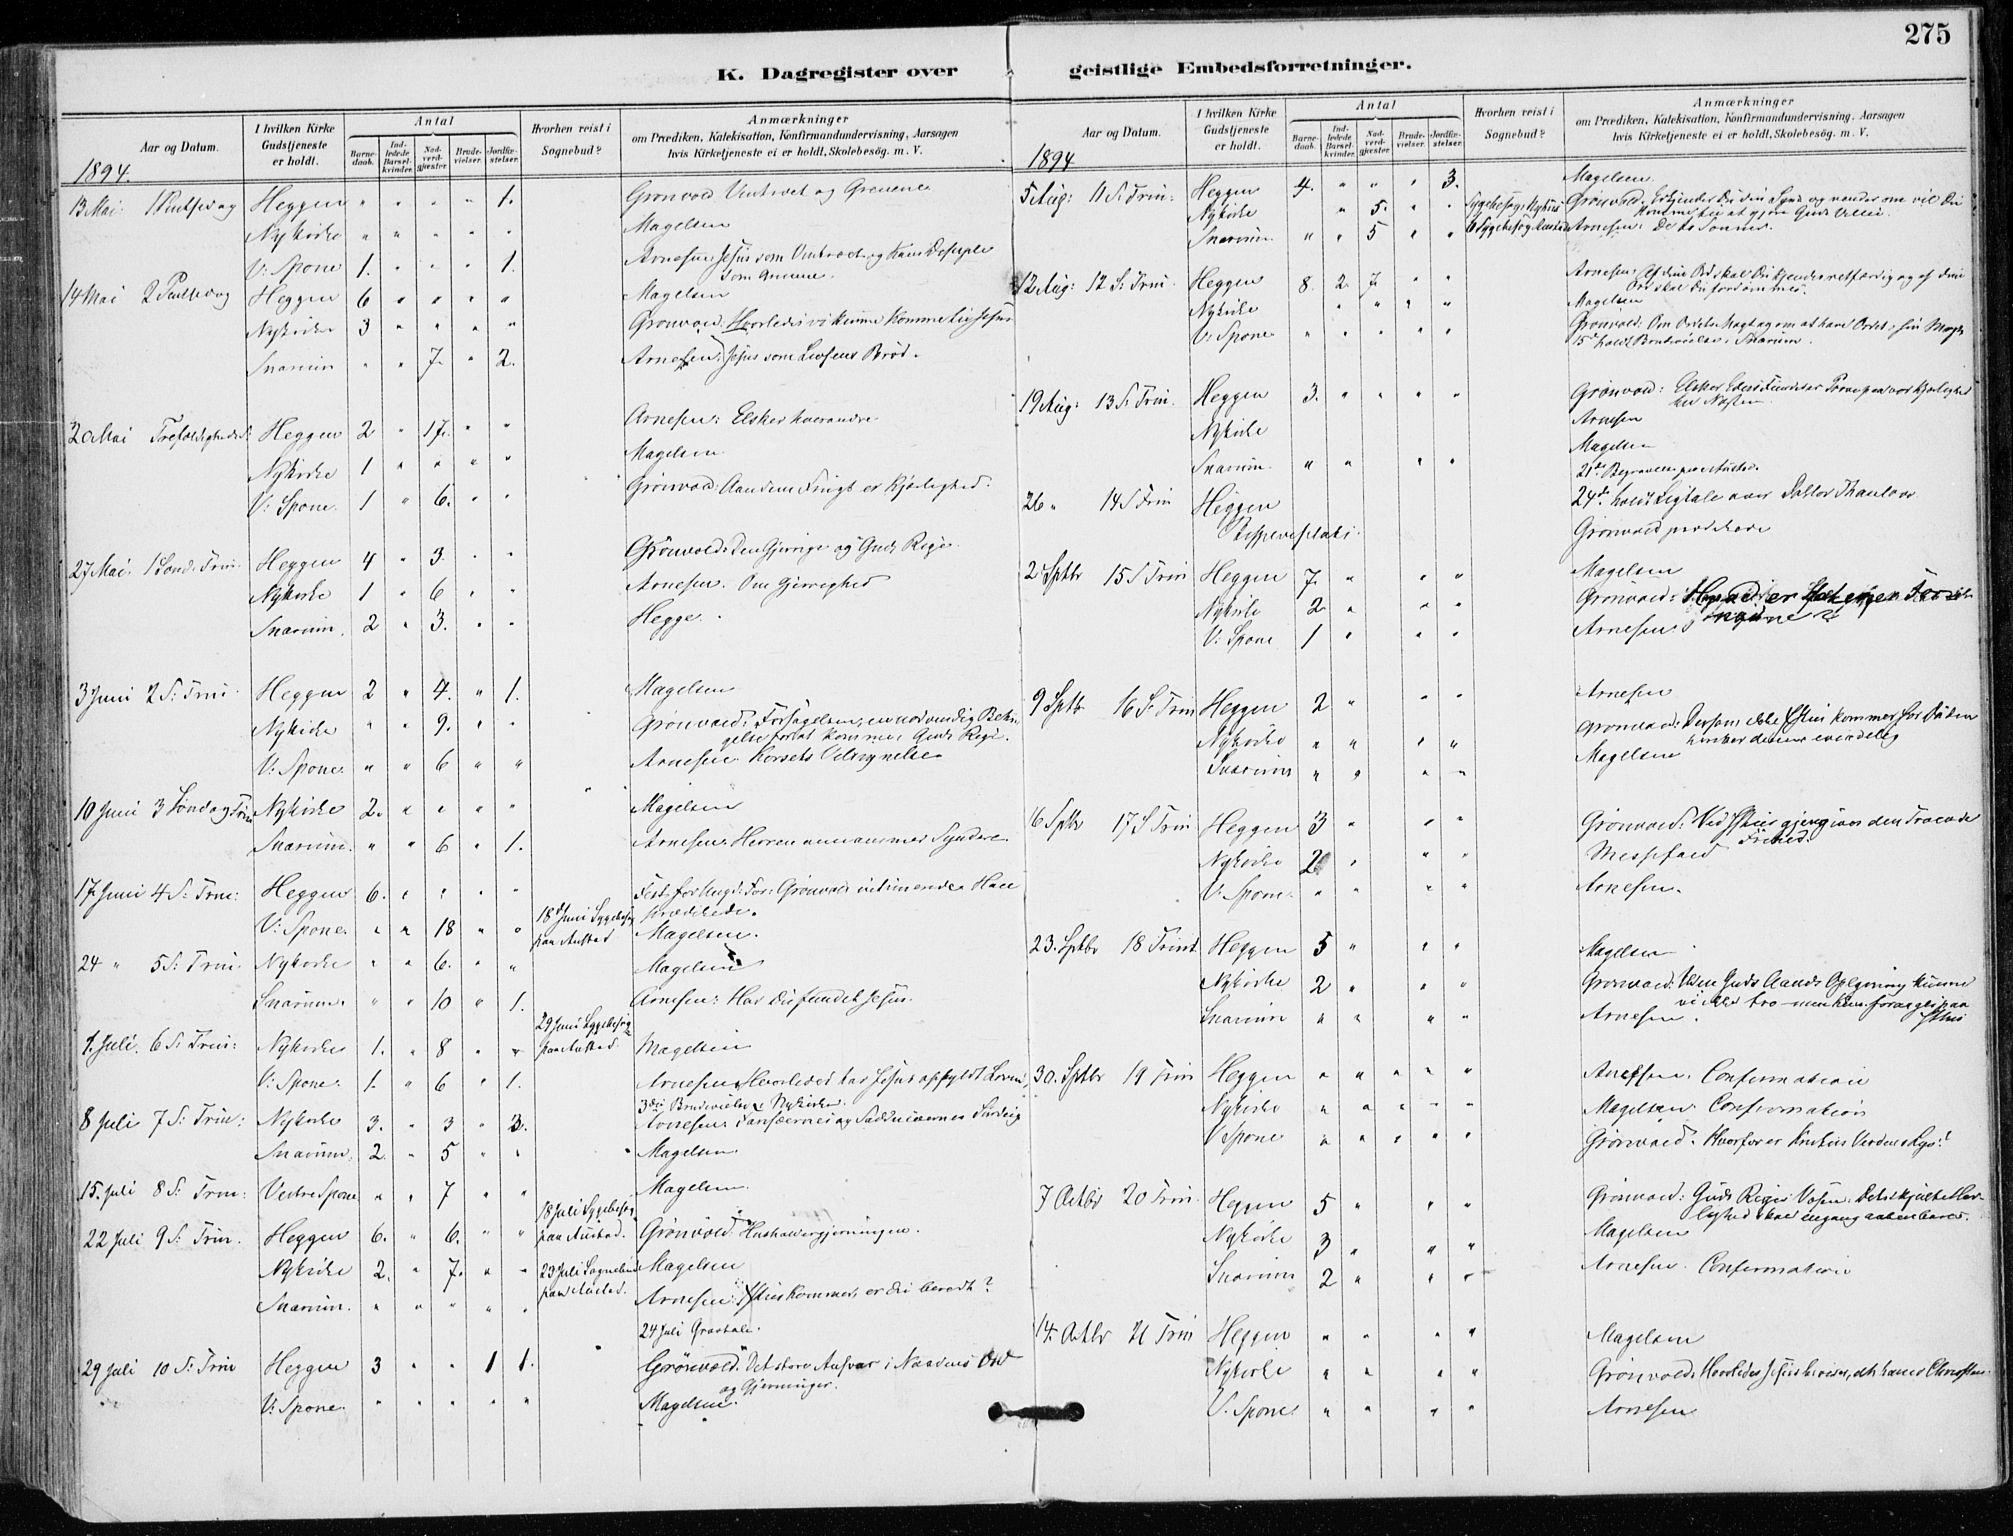 275
K. Dagregister over geistlige Embedsforretninger.
Aar og Datum.
I hvilken Kirke Gudstjeneste er holdt.
Antal
Barnedaab.
Indledede Barselkvinder.
Nadverdgjester.
Brudevielser.
Jordfæstelser.
Hvorhen reist i Sognebud?
Anmærkninger
om Prædiken, Katekisation, Konfirmandundervisning, Aarsagen
hvis Kirketjeneste ei er holdt, Skolebesøg. m. V.
1894.
13 Mai 1 Pintsedag Heggen " " " " 1. Grønvold Vintræet og Grenene
Nykirke " " " " " Magelsen
V: Spone 1. " " " 1. Arnesen: Jesus som Vintræet og hans Disciple
som Grenene.
14 Mai 2 Pintsedag Heggen 6 " " " " Magelsen
Nykirke 3 " " " " Grønvold: Hvorledes vi kunne komme til Jesus
Snarum " " 7. " 2. Arnesen: Jesus som Livsens Brød.
20 Mai Trefoldigheds S: Heggen 2 " 17. " " Arnesen: Elsker hverandre
Nykirke 1 " " " " Magelsen
V: Spone. 1 " 6. " " Grønvold: Aandens Frugt er Kjærlighed.
27 Mai. 1 Sønd. Trin. Heggen 4 " 3. " " Grønvold: Den Gjerrige og Guds Rige.
Nykirke 1 " 6 " " Arnesen. Om Gjerrighed
Snarum. 2 " 3. " " Hegge.
3 Juni 2 S: Trin. Heggen 2 " 4. " 1. Magelsen
Nykirke " " 9. " " Grønvold: Forsagelsen, en nødvendig Betin
gelse for at komme i Guds Rige.
V: Spone. " " 6 " " Arnesen. Korsets Velsignelse
10 Juni 3 Søndag Trin Nykirke 2. " " " " Magelsen
Snarum. " " 6 " 1. Arnesen: Herren annammer Syndere.
17 Juni 4 S: Trin: Heggen 6. " " " " Fest for Ungd. For: Grønvold intimerede Han
prædikede.
V: Spone. " " 18 " " 18 Juni Sygebesøg paa Austad Magelsen.
24 " 5 S: Trin. Nykirke " " 6. " " Magelsen
Snarum. " " 10 " 1. Arnesen: Har du fundet Jesus.
29 Juni Sygebesøg paa Austad.
1. Juli. 6 S: Trin: Nykirke 1. " 8 " " Magelsen
V: Spone. 1. " 6 " 1. Arnesen, Hvorledes har Jesus opfyldt Loven,
3die Brudevielse i Nykirke.
8 Juli 7 S: Trin: Nykirke 3. " 3 " 3. Arnesen: Farisæernes og Sadducæernes Surdeig
Snarum. 2. " 5 " " Magelsen.
15. Juli 8 S: Trin: Vestre Spone " " 7 " " Magelsen.
18 Juli Sygebesøg paa Austad.
22 Juli 9 S: Trin. Heggen 6. " 6. " " Grønvold: Husholdergjerningen.
Nykirke 2. " 7. " " 23 Juli Sognebud paa Austad. Magelsen
Snarum. " " " " " Arnesen: Jesus kommer, er du beredt?
24 Juli Gravtale.
29 Juli 10 S: Trin Heggen 3 " " 1 1. Grønvold. Det store Ansvar i Naadens Ord
og Gjerninger.
V: Spone. " " " " " Magelsen.
Aar og Datum.
I hvilken Kirke Gudstjeneste er holdt.
Antal
Barnedaab.
Indledede Barselkvinder.
Nadverdgjester.
Brudevielser.
Jordfæstelser.
Hvorhen reist i Sognebud?
Anmærkninger
om Prædiken, Katekisation, Konfirmandundervisning, Aarsagen
hvis Kirketjeneste ei er holdt, Skolebesøg. m. V.
1894
5 Aug: 11 S: Trin: Heggen 4. " " " 3. Magelsen.
Nykirke " 5. " " Sygebesøg i Nykirke Grønvold. Erkjender Du din Synd og vender om vil Du
komme til at gjøre Guds Villie.
Snarum " " 5 " " Arnesen: De to Sønner.
12 Aug: 12 S: Trin. Heggen 8. 2. 7. " " Arnesen: Af dine Ord skal du kjendes retfærdig og af dine
Ord skal du fordømmes.
Nykirke " " " " Magelsen
V: Spone " " " " " Grønvold: Om Ordets Magt og om at have Ordet i sin Magt
15de holdt Brudevielse i Snarum.
19 Aug: 13 S: Trin. Heggen 3. " " " " Grønvold: Elsker
Nykirke Arnesen
Snarum. " " " " Magelsen
21de Begravelse paa Austad.
26 " 14 S Trin Heggen 24de holdt Ligtale over
Bispevisitats. Grønvold prædikede
2 Sptbr 15 S Trin Heggen 7. " " " Magelsen
Nykirke 2 " " " Grønvold: Hvad er
V: Spone 1 " " " Arnesen
9 Sptbr 16 S. Trin Heggen 2 " " " Arnesen
Nykirke " " " " Grønvold: Dersom ikke Jesus kommer før Døden
Snarum " " " " Magelsen
16 Sptbr 17 S Trin Heggen 3 " " " Grønvold: Ved Jesus den Troende
Frihed.
Nykirke 2 " " " Messefald
V: Spone. " " " " Arnesen.
23. Sptbr 18 Trint Heggen 5 " " " Magelsen
Nykirke 2 " " " Grønvold: Uden Guds Aands Oplysning kunne
vi ikke tro – men kun forarges paa
Jesus
Snarum " " " " Arnesen.
30. Sptbr 19 Trin Heggen " " " " " Arnesen. Confirmation
Nykirke " " " " " Magelsen. Confirmation
V Spone " " " " " Grønvold. Hvorfor er Kristus Verdens Lys?
7 Octbr 20 Trin. Heggen 5 " " " Grønvold: Guds Riges Væsen. Det skjulte Her-
lighed skal engang aabenbares.
Nykirke 3 " " " Magelsen
Snarum 2 " " " Arnesen. Confirmation
14. Octbr 21 Trin Heggen " " " " Magelsen
Nykirke " " " " Grønvold: Hvorledes Jesus beviser, at han er Christus.
V. Spone. " " " " Arnesen